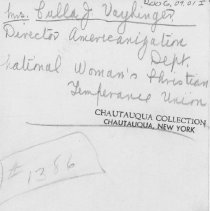 Mrs. Culla J Vayhinger
Director Americanization
Dept.
National Woman's Christian
Temperance Union
CHAUTAUQUA COLLECTION
CHAUTAUQUA, NEW YORK
#1286